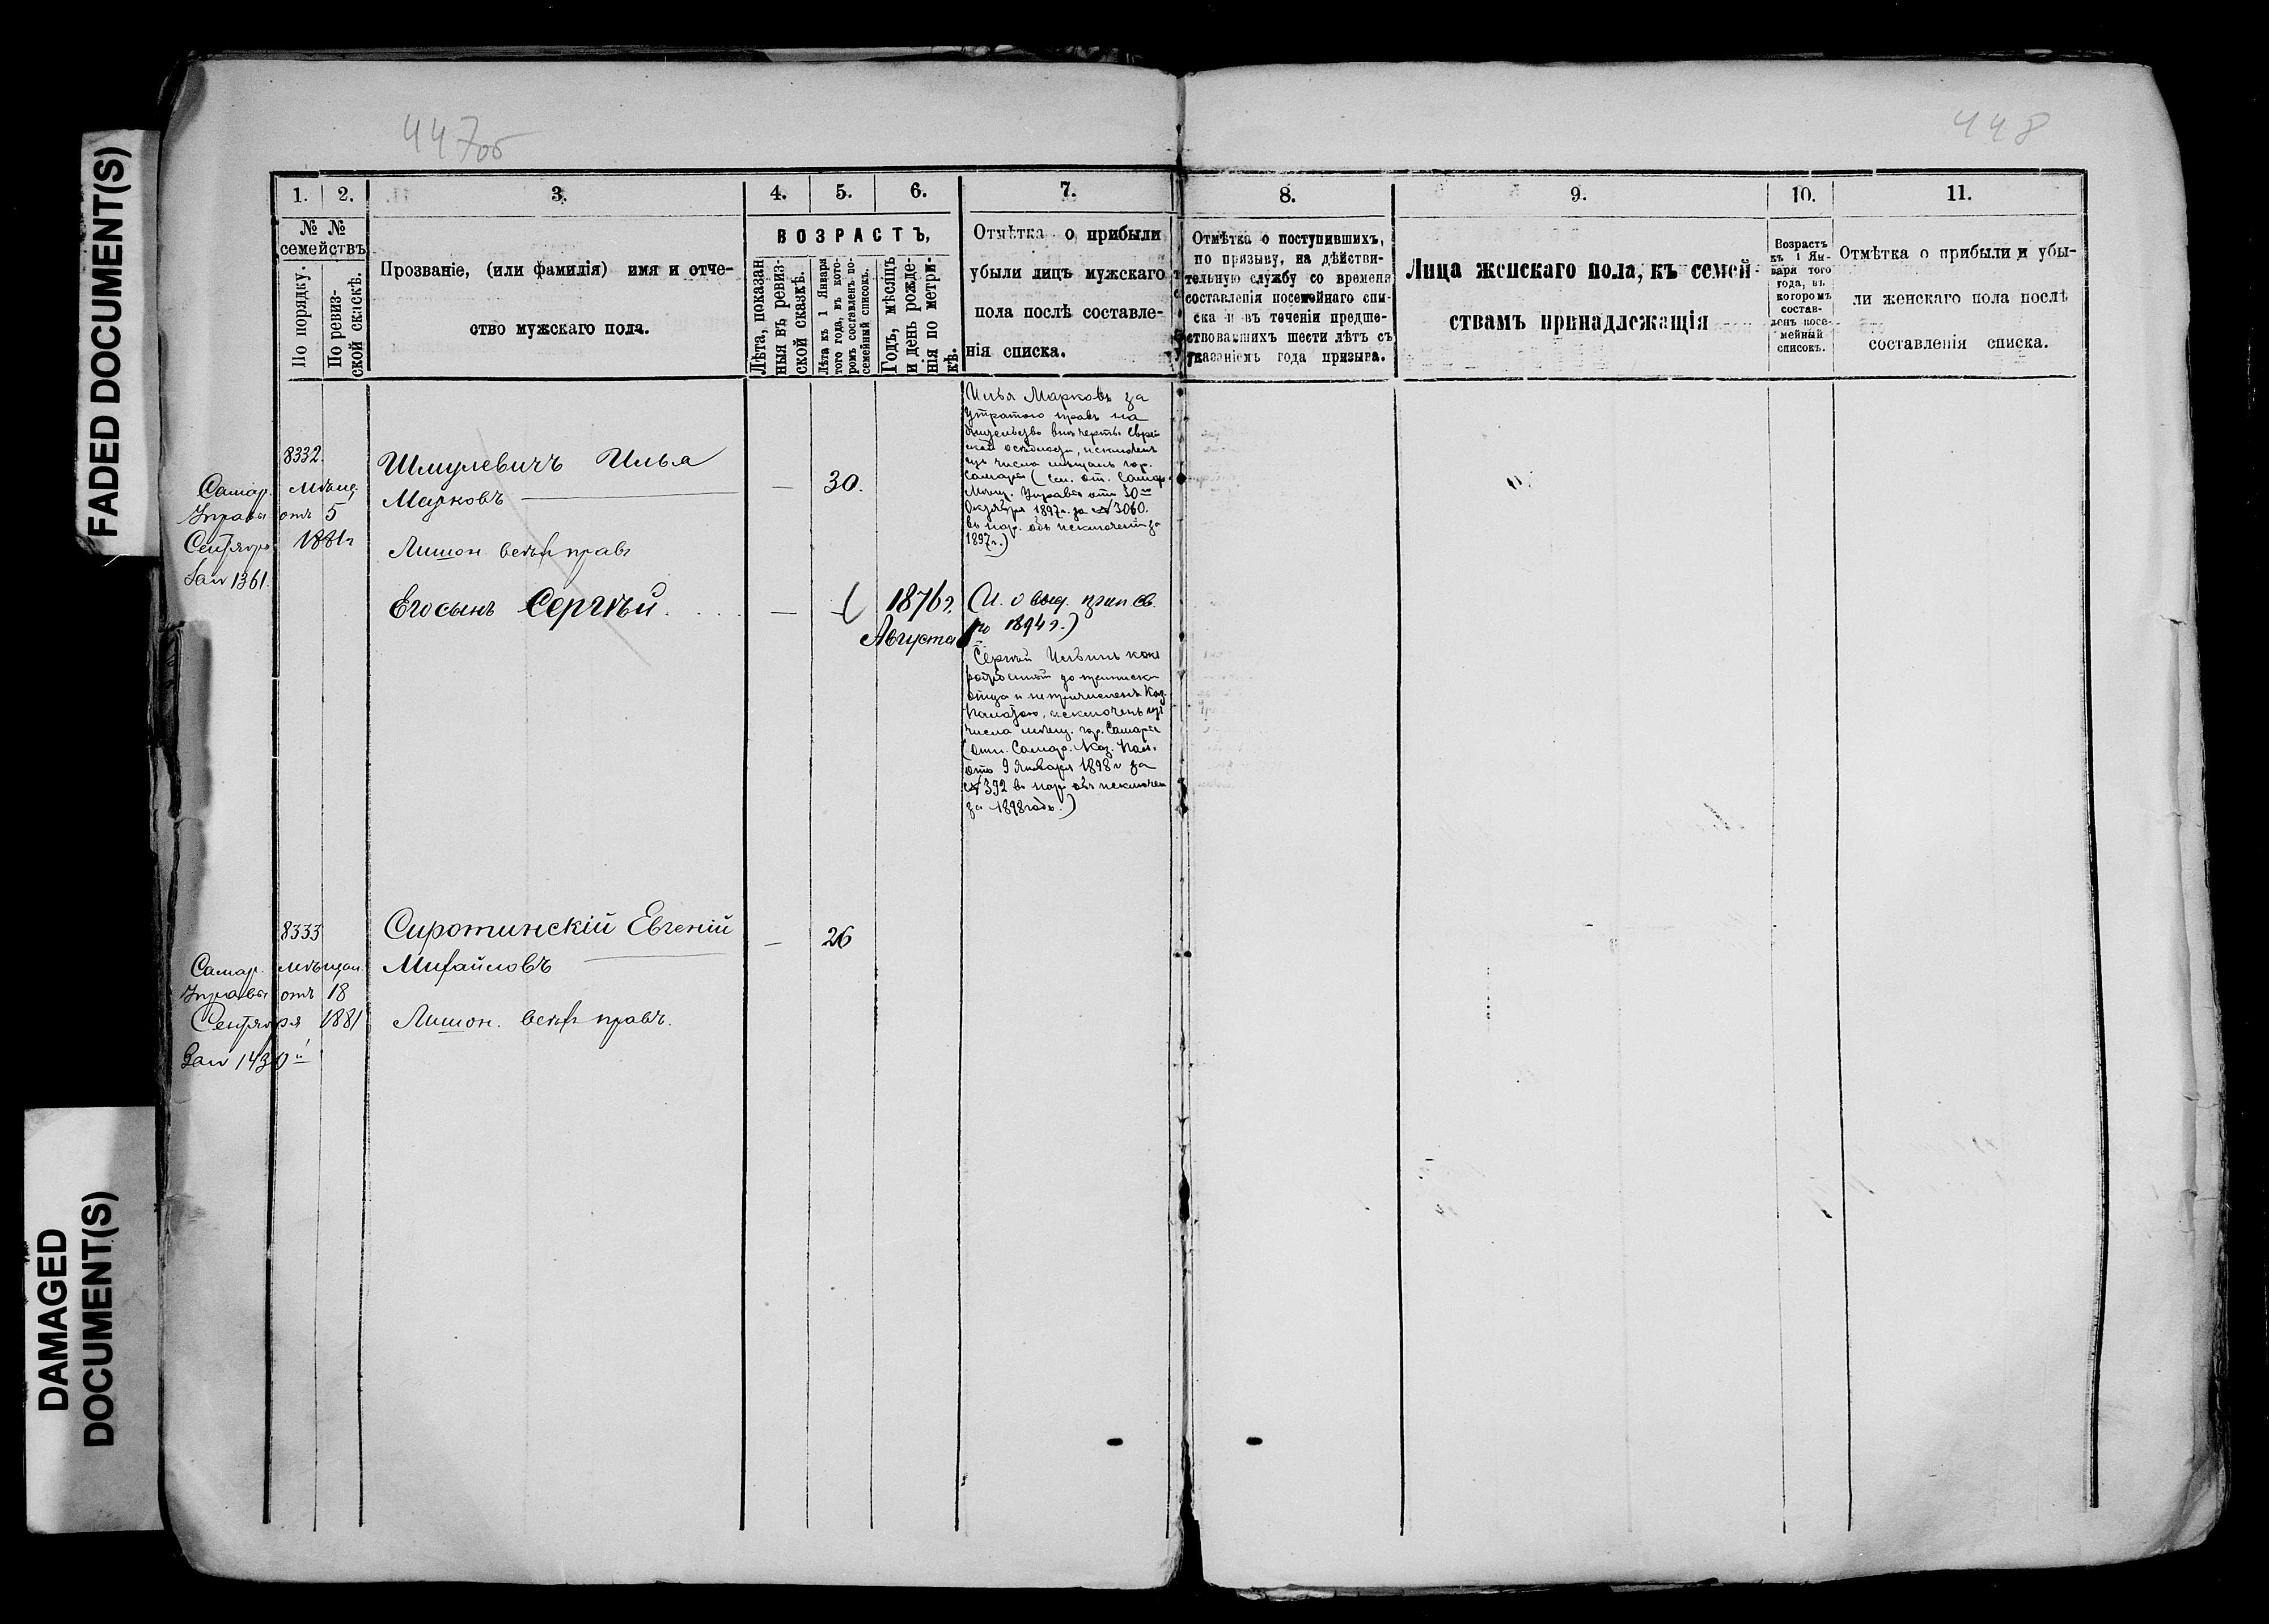 FADED DOCUMENT(S)
DAMAGED
DOCUMENT(S)
447об
448
1.
2.
3.
4.
5.
6.
7.
8.
9.
10.
11.
№ №
семействъ
По порядку.
По ревиз-
ской сказкѣ.
Прозваніе, (или фамилія) имя и отче-
ство мужскаго пола.
ВОЗРАСТЪ,
Лѣта, показан
ныя въ ревиз-
ской сказкѣ.
Лѣта къ 1 Января
того года, въ кото-
ромъ составленъ по-
семейный списокъ.
Годъ, мѣсяцъ
и день рожде-
нія по метри-
кѣ.
Отмѣтка о прибыли
убыли лицъ мужскаго
пола послѣ составле-
нія списка.
Отмѣтка о поступившихъ,
по призыву, на дѣйстви-
тельную службу со времени
составленія посемейнаго спи-
ска и въ теченіи предше-
ствовавшихъ шести лѣтъ съ
указаніемъ года призыва.
Лица женскаго пола, къ семей-
ствамъ принадлежащія
Возрастъ
къ 1 Ян-
варя того
года, въ
которомъ
состав-
ленъ посе-
мейный
списокъ.
Отмѣтка о прибыли и убы-
ли женскаго пола послѣ
составленія списка.
8332
Самар. Мѣщ.
Управы отъ 5
Сентября 1881г
За № 1361.
Шмулевичъ Илья
Марковъ
—
30.
Лишон всѣхъ правъ
Илья Марковъ за
утратою правъ на
жительство внѣ черты Еврей
ской осѣдлости, исключенъ
изъ числа мѣщанъ гор.
Самары (см. от. Самар.
Мѣщ. Управы отъ 30го
Октября 1897г. за № 3060.
въ нар. объ исключеніи за
1897г.)
Его сынъ Сергѣй. . . .
—
1876г.
Августа
1894г.)
Сергѣй Ильинъ какъ
рожденный до приписки
отца и не причисленъ Каз.
Палатою, исключенъ изъ
числа мѣщ. гор. Самары
(отн. Самар. Каз. Пал.
отъ 9 Января 1898г за
№ 392 въ нар объ исключен
за 1898 годъ.)
8333
Самар. Мѣщан.
Управы отъ 18
Сентября 1881
За № 1430й
Сиротинскій Евгеній
Михайловъ
—
26
Лишон. всѣхъ правъ.